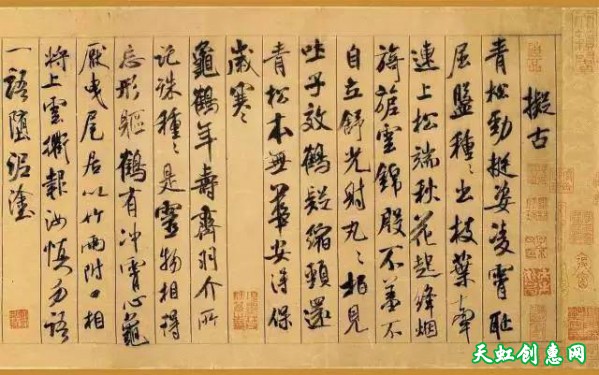 擬古
青松勁挺姿凌霄恥
屈盤種〻出枝葉牽
連上松端秋花起絳烟
旖旎雲錦殷不羞不
自立舒光射丸〻柏見
吐子效鶴疑縮頸還
青松本無華安得保
歲寒
龜鶴年壽齊羽介所
託殊種〻是靈物相得
忘形軀鶴有冲霄心龜
厭曳尾居以竹兩附口相
將上雲衢報汝慎勿語
一語墮泥塗
天虹创惠网